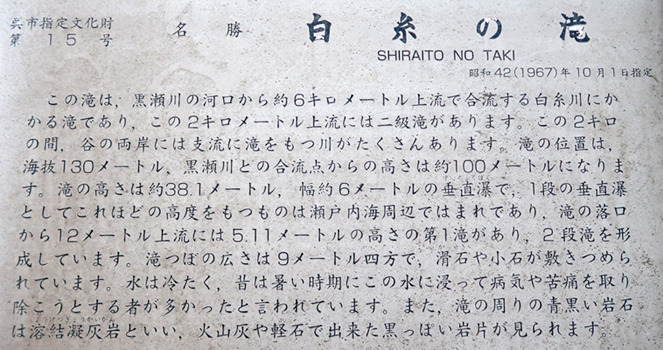 呉市指定文化財
第15号
名勝 白糸の滝
SHIRAITO NO TAKI
昭和42(1967)年10月1日指定
この滝は，黒瀬川の河口から約6キロメートル上流で合流する白糸川にか
かる滝であり，この2キロメートル上流には二級滝があります。この2キロ
の間，谷の両岸には支流に滝をもつ川がたくさんあります。滝の位置は，
海抜130メートル，黒瀬川との合流点からの高さは約100メートルになりま
す。滝の高さは約38.1メートル，幅約6メートルの垂直瀑で，1段の垂直瀑
としてこれほどの高度をもつものは瀬戸内海周辺ではまれであり，滝の落口
から12メートル上流には5.11メートルの高さの第1滝があり，2段滝を形
成しています。滝つぼの広さは9メートル四方で，滑石や小石が敷きつめら
れています。水は冷たく，昔は暑い時期にこの水に浸って病気や苦痛を取り
除こうとする者が多かったと言われています。また，滝の周りの青黒い岩石
は溶結凝灰岩といい，火山灰や軽石で出来た黒っぽい岩片が見られます。